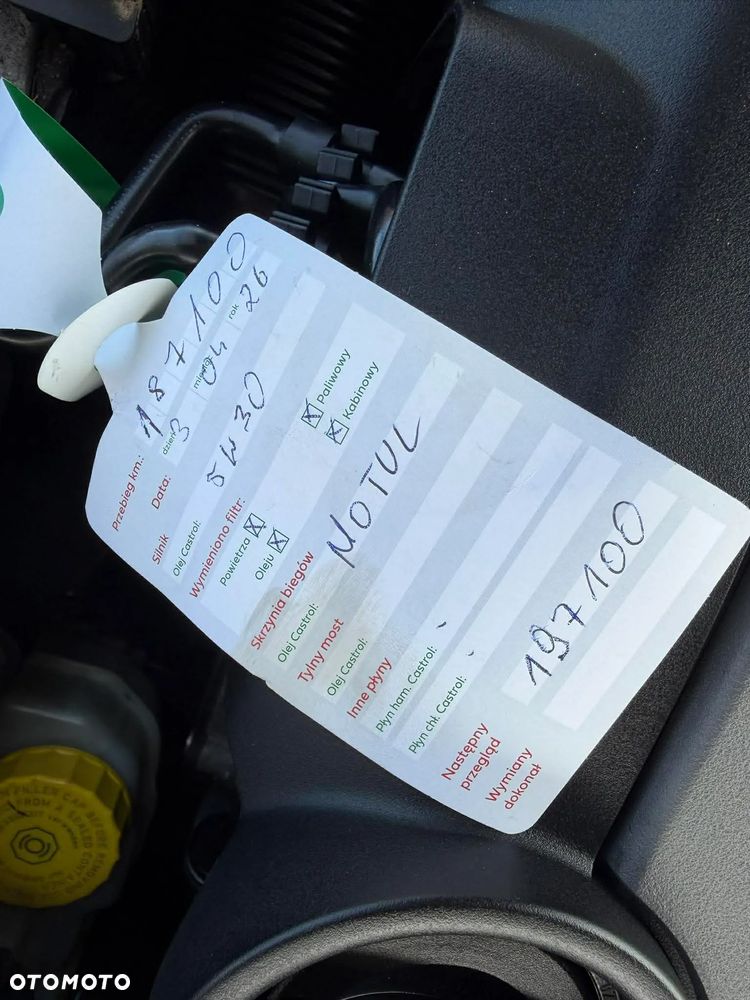 Przebieg km.: 187100
Data: dzień 3 miesiąc 04 rok 26
Silnik
Olej Castrol: 5W30
Wymieniono filtr:
Powietrza ☒ Paliwowy ☒
Oleju ☒ Kabinowy ☒
Skrzynia biegów
Olej Castrol: MOTUL
Tylny most
Olej Castrol:
Inne płyny
Płyn ham. Castrol: -
Płyn chł. Castrol: -
Następny
przegląd
197100
Wymiany
dokonał
OTOMOTO